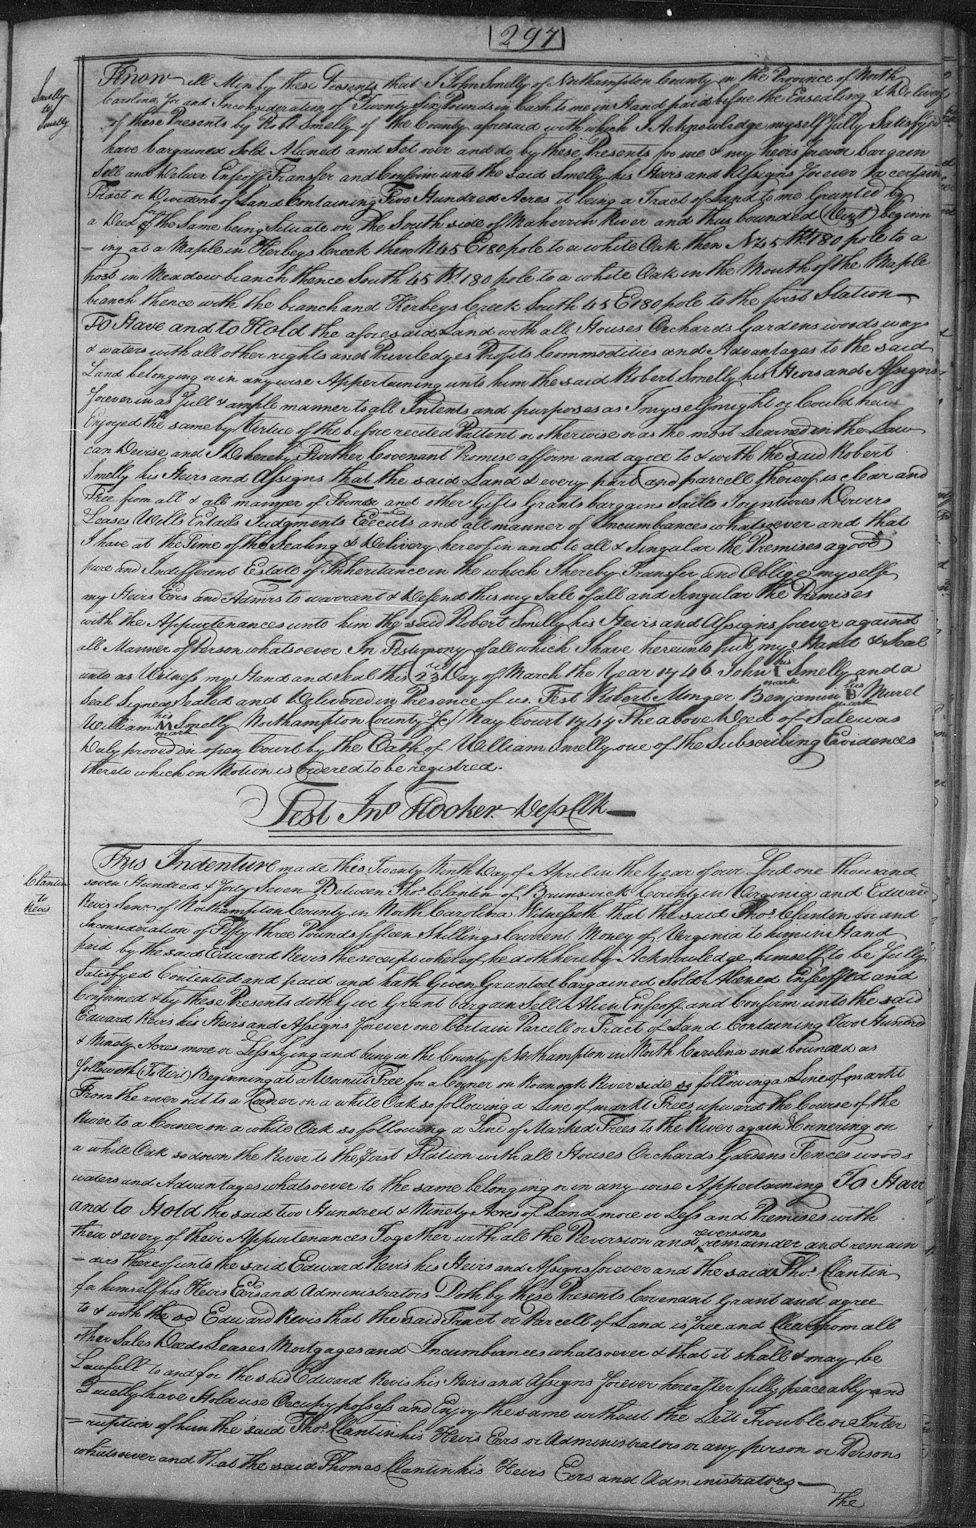 297
Smelly
to
Smelly
Know all Men by these Presents that I John Smelly of Northampton County in the Province of North
Carolina for and in Consideration of Twenty Six Pounds in Cash to me in Hand paid before the Ensealing & Delivery
of these Presents by Robt Smelly of the County aforesaid with which I Acknowledge myself fully Satisfyed
have bargained Sold Aliened and Set over and do by these Presents for me & my heirs forever bargain
Sell and Deliver Enfeoff Transfer and Confirm unto the said Smelly his Heirs and Assigns forever a certain
Tract or Dividend of Land Containing Two Hundred Acres it being a Tract of Land to me Granted by
a Deed of the Same being Situate on the South side of Maherrin River and thus bounded (Vizt) beginn
-ing at a Maple in Herbeys Creek then N 45 E 180 pole to a white Oak then N 45 Wt 180 pole to a
post in Meadow branch thence South 45 Wt 180 pole to a white Oak in the Mouth of the Maple
branch thence with the branch and Herbeys Creek South 45 E 180 pole to the first Station
To Have and to Hold the aforesaid Land with all Houses Orchards Gardens woods ways
& waters with all other rights and Priviledges Profits Commodities and Advantages to the said
Land belonging or in any wise Appertaining unto him the said Robert Smelly his Heirs and Assigns
forever in as full & ample manner to all Intents and purposes as I myself might or Could have
Enjoyed the same by Virtue of the before recited Pattent or otherwise or as the most Learned in the Law
can Devise, and I Do hereby Further Covenant Promise affirm and agree to & with the said Robert
Smelly his Heirs and Assigns that the said Land & every part and parcell thereof is clear and
Free from all & all manner of former and other Gifts Grants bargains Sails Joyntures Dowers
Leases Wills Entails Judgments Excuts and all manner of Incumbances whatsoever and that
I have at the Time of the Sealing & Delivery hereof in and to all & Singular the Premises a good
pure and Indefferent Estate of Inheritance in the which I hereby Transfer and Oblige myself
my Heirs Exrs and Admrs to warrant & Defend this my Sale of all and Singular the Premises
with the Appurtenances unto him the said Robert Smelly his Heirs and Assigns forever against
all Manner of Person whatsoever In Testimony of all which I have hereunto put my Hand & Seal
unto as Witness my Hand and Seal this (23d) Day of March the Year 1746 John his mark Smelly and a
Seal Signed Sealed and Delivered in Presence of us. Test Robert Monger Benjamin his B mark
William his M mark Smelly Northampton County Sc May Court 1747 The above Deed of Sale was
Duly proved in open Court by the Oath of William Smelly one of the Subscribing Evidences
thereto which on Motion is Ordered to be registred.
Test Jno Hooker Dep Clk
Clanton
to
Revis
This Indenture made this Twenty Ninth Day of April in the Year of our Lord one thousand
seven Hundred & Forty Seven Between Thos Clanton of Brunswick County in Virginia and Edward
Revis Senr of Northampton County in North Carolina Witnesseth that the said Thos Clantin for and
inconsideration of Fifty three Pounds fifteen Shillings Current Money of Virginia to him in Hand
paid by the said Edward Revis the receipt whereof he doth hereby Acknowledge himself to be fully
Satisfyed Contented and paid and hath Given Granted bargained Sold Aliened Enfeoffed and
Confirmed & by these Presents doth Give Grant bargain Sell Alien Enfeoff and Confirm unto the said
Edward Revis his Heirs and Assigns forever one Certain Parcell or Tract of Land Containing Two Hundred
& Ninety Acres more or Less Lying and being in the County of Northampton in North Carolina and bounded as
followeth (To Wit) Beginning at a Walnut Tree for a Corner on Roanoak River side so following a Line of markt
From the river out to a Corner on a white Oak so following a Line of markt Trees upward the Course of the
River to a Corner on a white Oak so following a Line of Marked Trees to the River again Cornering on
a white Oak so down the River to the first Station with all Houses Orchards Gardens Fences woods
waters and Advantages whatsoever to the same belonging or in any wise Appertaining To Have
and to Hold the said two Hundred & Ninety Acres of Land more or Less and Premises with
their & every of their Appurtenances Together with all the Reversion and reversions remainder and remain
-ders thereof unto the said Edward Revis his Heirs and Assigns forever and the said Thos Clantin
for himself his Heirs Exrs and Administrators Doth by these Presents Covenant Grant and agree
to & with the sd Edward Revis that the said Tract or Parcell of Land is free and Clear from all
other Sales Deads Leases Mortgages and Incumbrances whatsoever & that it shall & may be
Lawfull to and for the said Edward Revis his Heirs and Assigns forever hereafter fully peaceably and
Quietly have Hold use Occupy possess and Enjoy the same without the Lett Trouble or Inter
-ruption of him the said Thos Clantin his Heirs Exrs or Administrators or any person or Persons
whatsoever and that the said Thomas Clantin his Heirs Exrs and Administrators
The